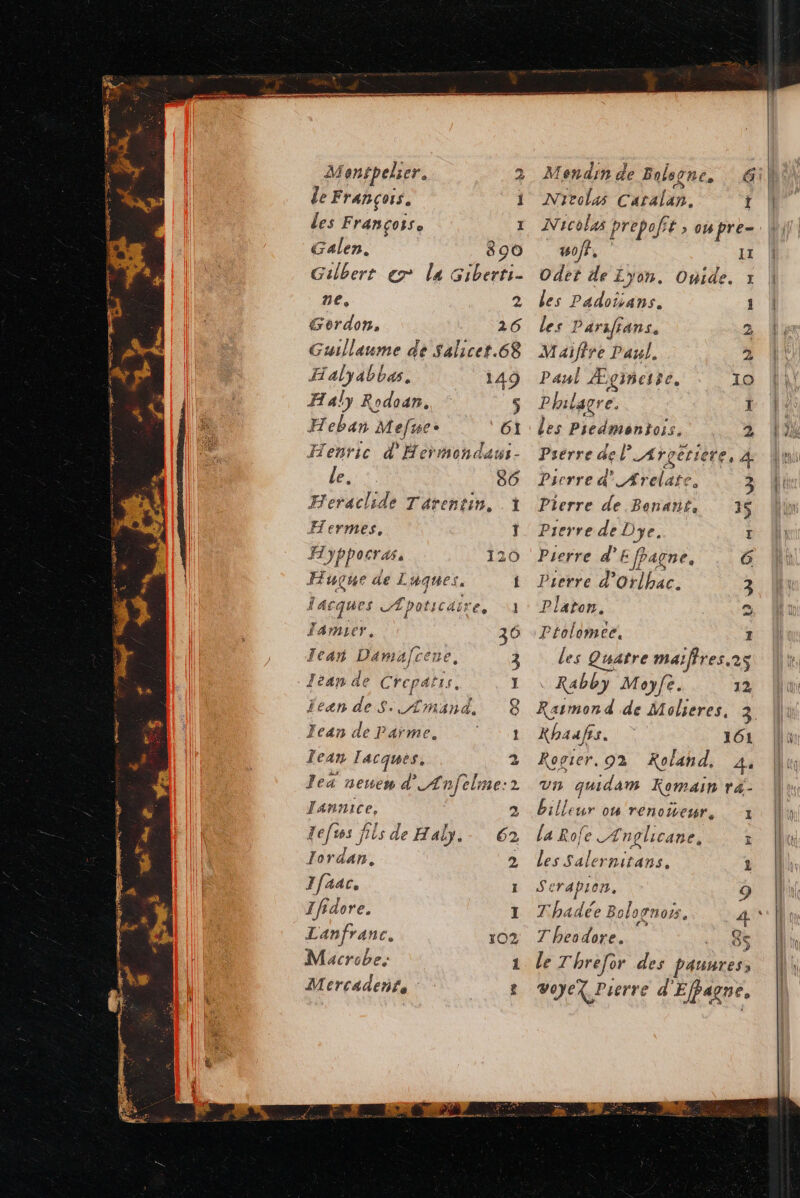 Montpelier. 2
le François. 1
les François. 1
Galen. 890
Gilbert &amp; la Giberti-
ne. 2
Gordon. 26
Guillaume de Salicet. 68
Halyabbas. 149
Haly Rodoan. 5
Heban Mesue. 61
Henric d'Hermondaui-
le. 86
Heraclide Tarentin. 1
Hermes. 1
Hyppocras. 120
Hugue de Luques. 1
Iacques Apoticaire. 1
Iamier. 36
Iean Damascene. 3
Iean de Crepatis. 1
Iean de S. Amand. 8
Iean de Parme. 1
Iean Iacques. 2
Ieã neueu d'Anselme: 2
Iannice. 2
Iesus fils de Haly. 62
Iordan. 2
Isaac. 1
Isidore. 1
Lanfranc. 102
Macrobe. 1
Mercadent. 1
Mondin de Bologne. 6
Nicolas Catalan. 1
Nicolas preposit, ou pre-
uost. 11
Odet de Lyon. Ouide. 1
les Padoüans. 1
les Parisians. 2
Maistre Paul. 2
Paul Æginette. 10
Philagre. 1
les Piedmontois. 2
Pierre de l'Argẽtiere. 4
Pierre d'Arelate. 3
Pierre de Bonant. 15
Pierre de Dye. 1
Pierre d'Espagne. 6
Pierre d'Orlhac. 3
Platon. 2
Ptolomée. 1
les Quatre maistres. 25
Rabby Moyse. 12
Raimond de Molieres. 3
Rhaasis. 161
Rogier. 92 Roland. 4.
vn quidam Romain ra-
billeur ou renoüeur. 1
la Rose Anglicane. 1
les Salernitans. 1
Serapion. 9
Thadée Bolognois. 4
Theodore. 85
le Thresor des pauures,
voyez Pierre d'Espagne.